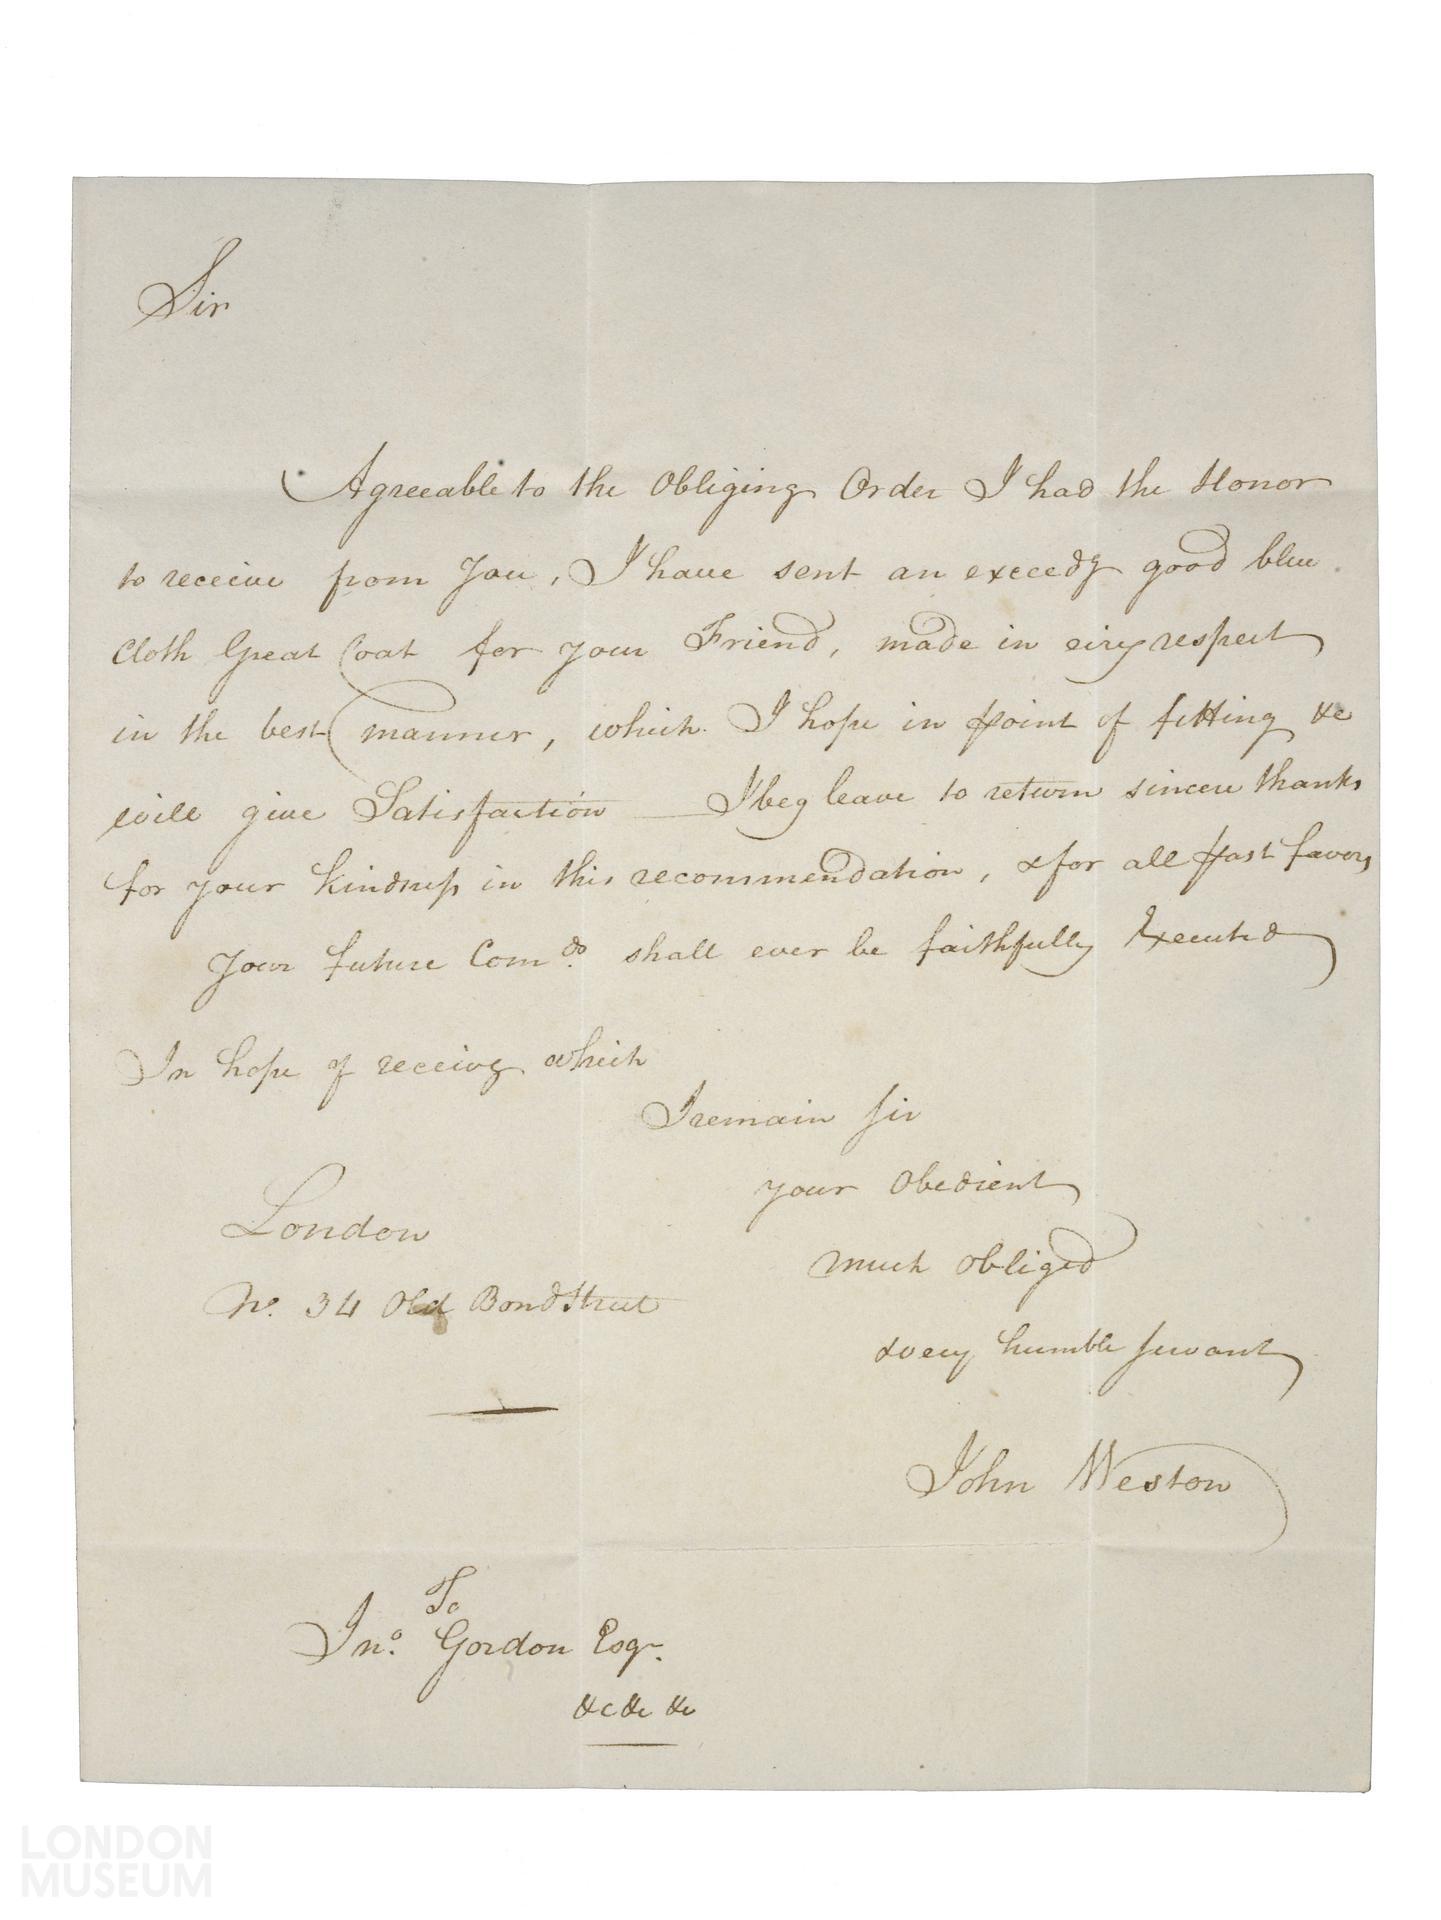 Sir
Agreeable to the Obliging Order I had the Honor
to receive from You, I have sent an exceedg good blue
Cloth Great Coat for your Friend, made in evry respect
in the best manner, which I hope in point of fitting &c
will give Satisfaction I beg leave to return sincere thanks
for your kindness in this recommendation, & for all past favors
Your future Comds. shall ever be faithfully Executed
In hope of receivg which
I remain Sir
your Obedient
much obliged
& very humble servant
London
No. 34 Old Bond Street
John Weston
To
Jno. Gordon Esqr.
&c &c &c
LONDON
MUSEUM